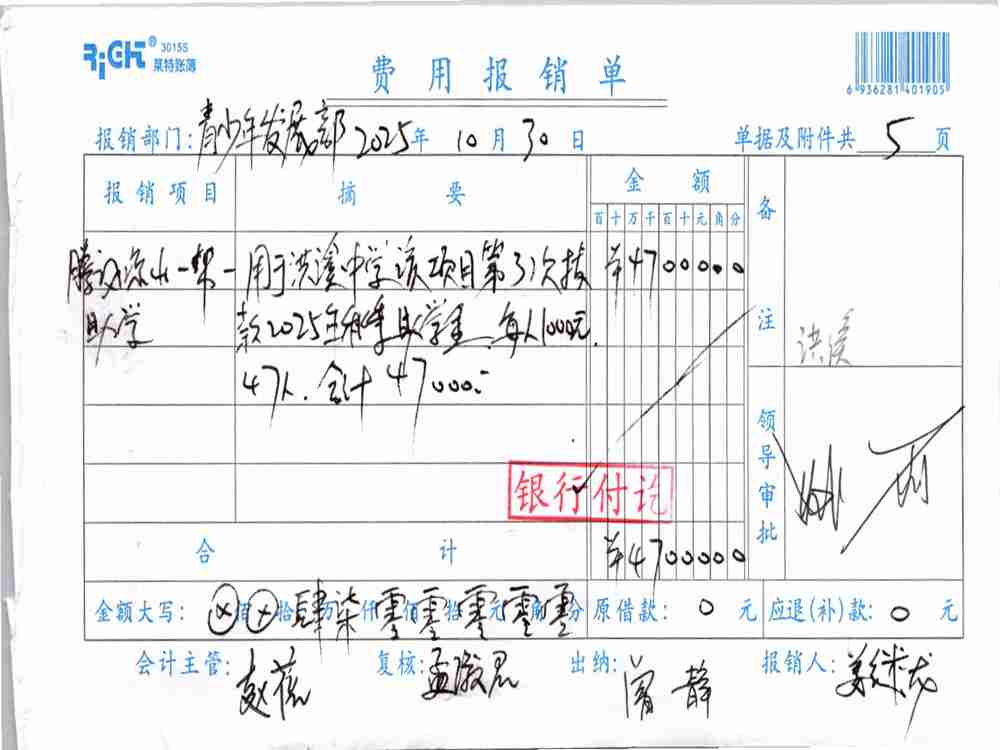 RiGHT® 3015S
莱特账簿
费用报销单
6 936281 401905
报销部门:青少年发展部 2025年 10月 30日 单据及附件共 5 页
报销项目 摘要 金额 备注
百十万千百十元角分
腾讯凉山一帮一 用于洪溪中学该项目第31次拨 ¥4700000
助学 款2025年秋季助学金,每人1000元,
洪溪
47人.合计47000.-
领导审批
银行付讫
合计 ¥4700000
金额大写: ⊗佰⊗拾肆万柒仟零佰零拾零元零角零分 原借款: 0 元 应退(补)款: 0 元
会计主管: 赵蓓 复核: 孟潋君 出纳: 曾静 报销人: